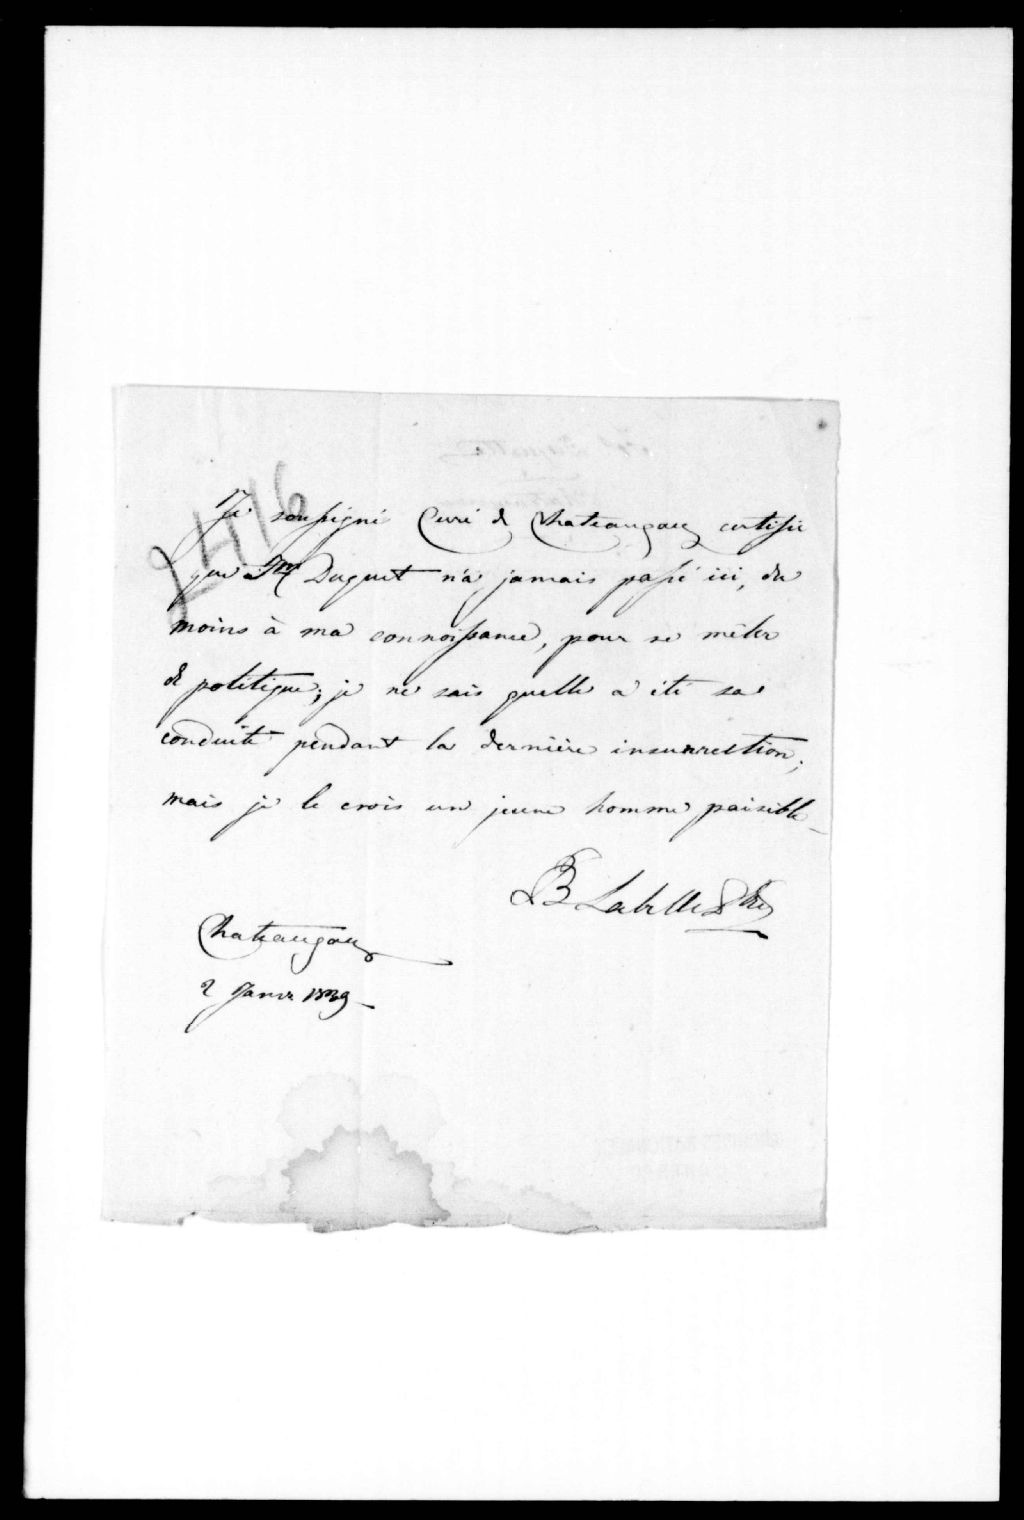 2416
Je soussigné Curé de Chateaugay certifie
que Mr Duquet n'a jamais passé ici, du
moins à ma connoissance, pour se mêler
de politique; je ne sais quelle a été sa
conduite pendant la dernière insurrection;
mais je le crois un jeune homme paisible_
JB Labelle Ptre
Chateaugay
2 Janvr 1839_